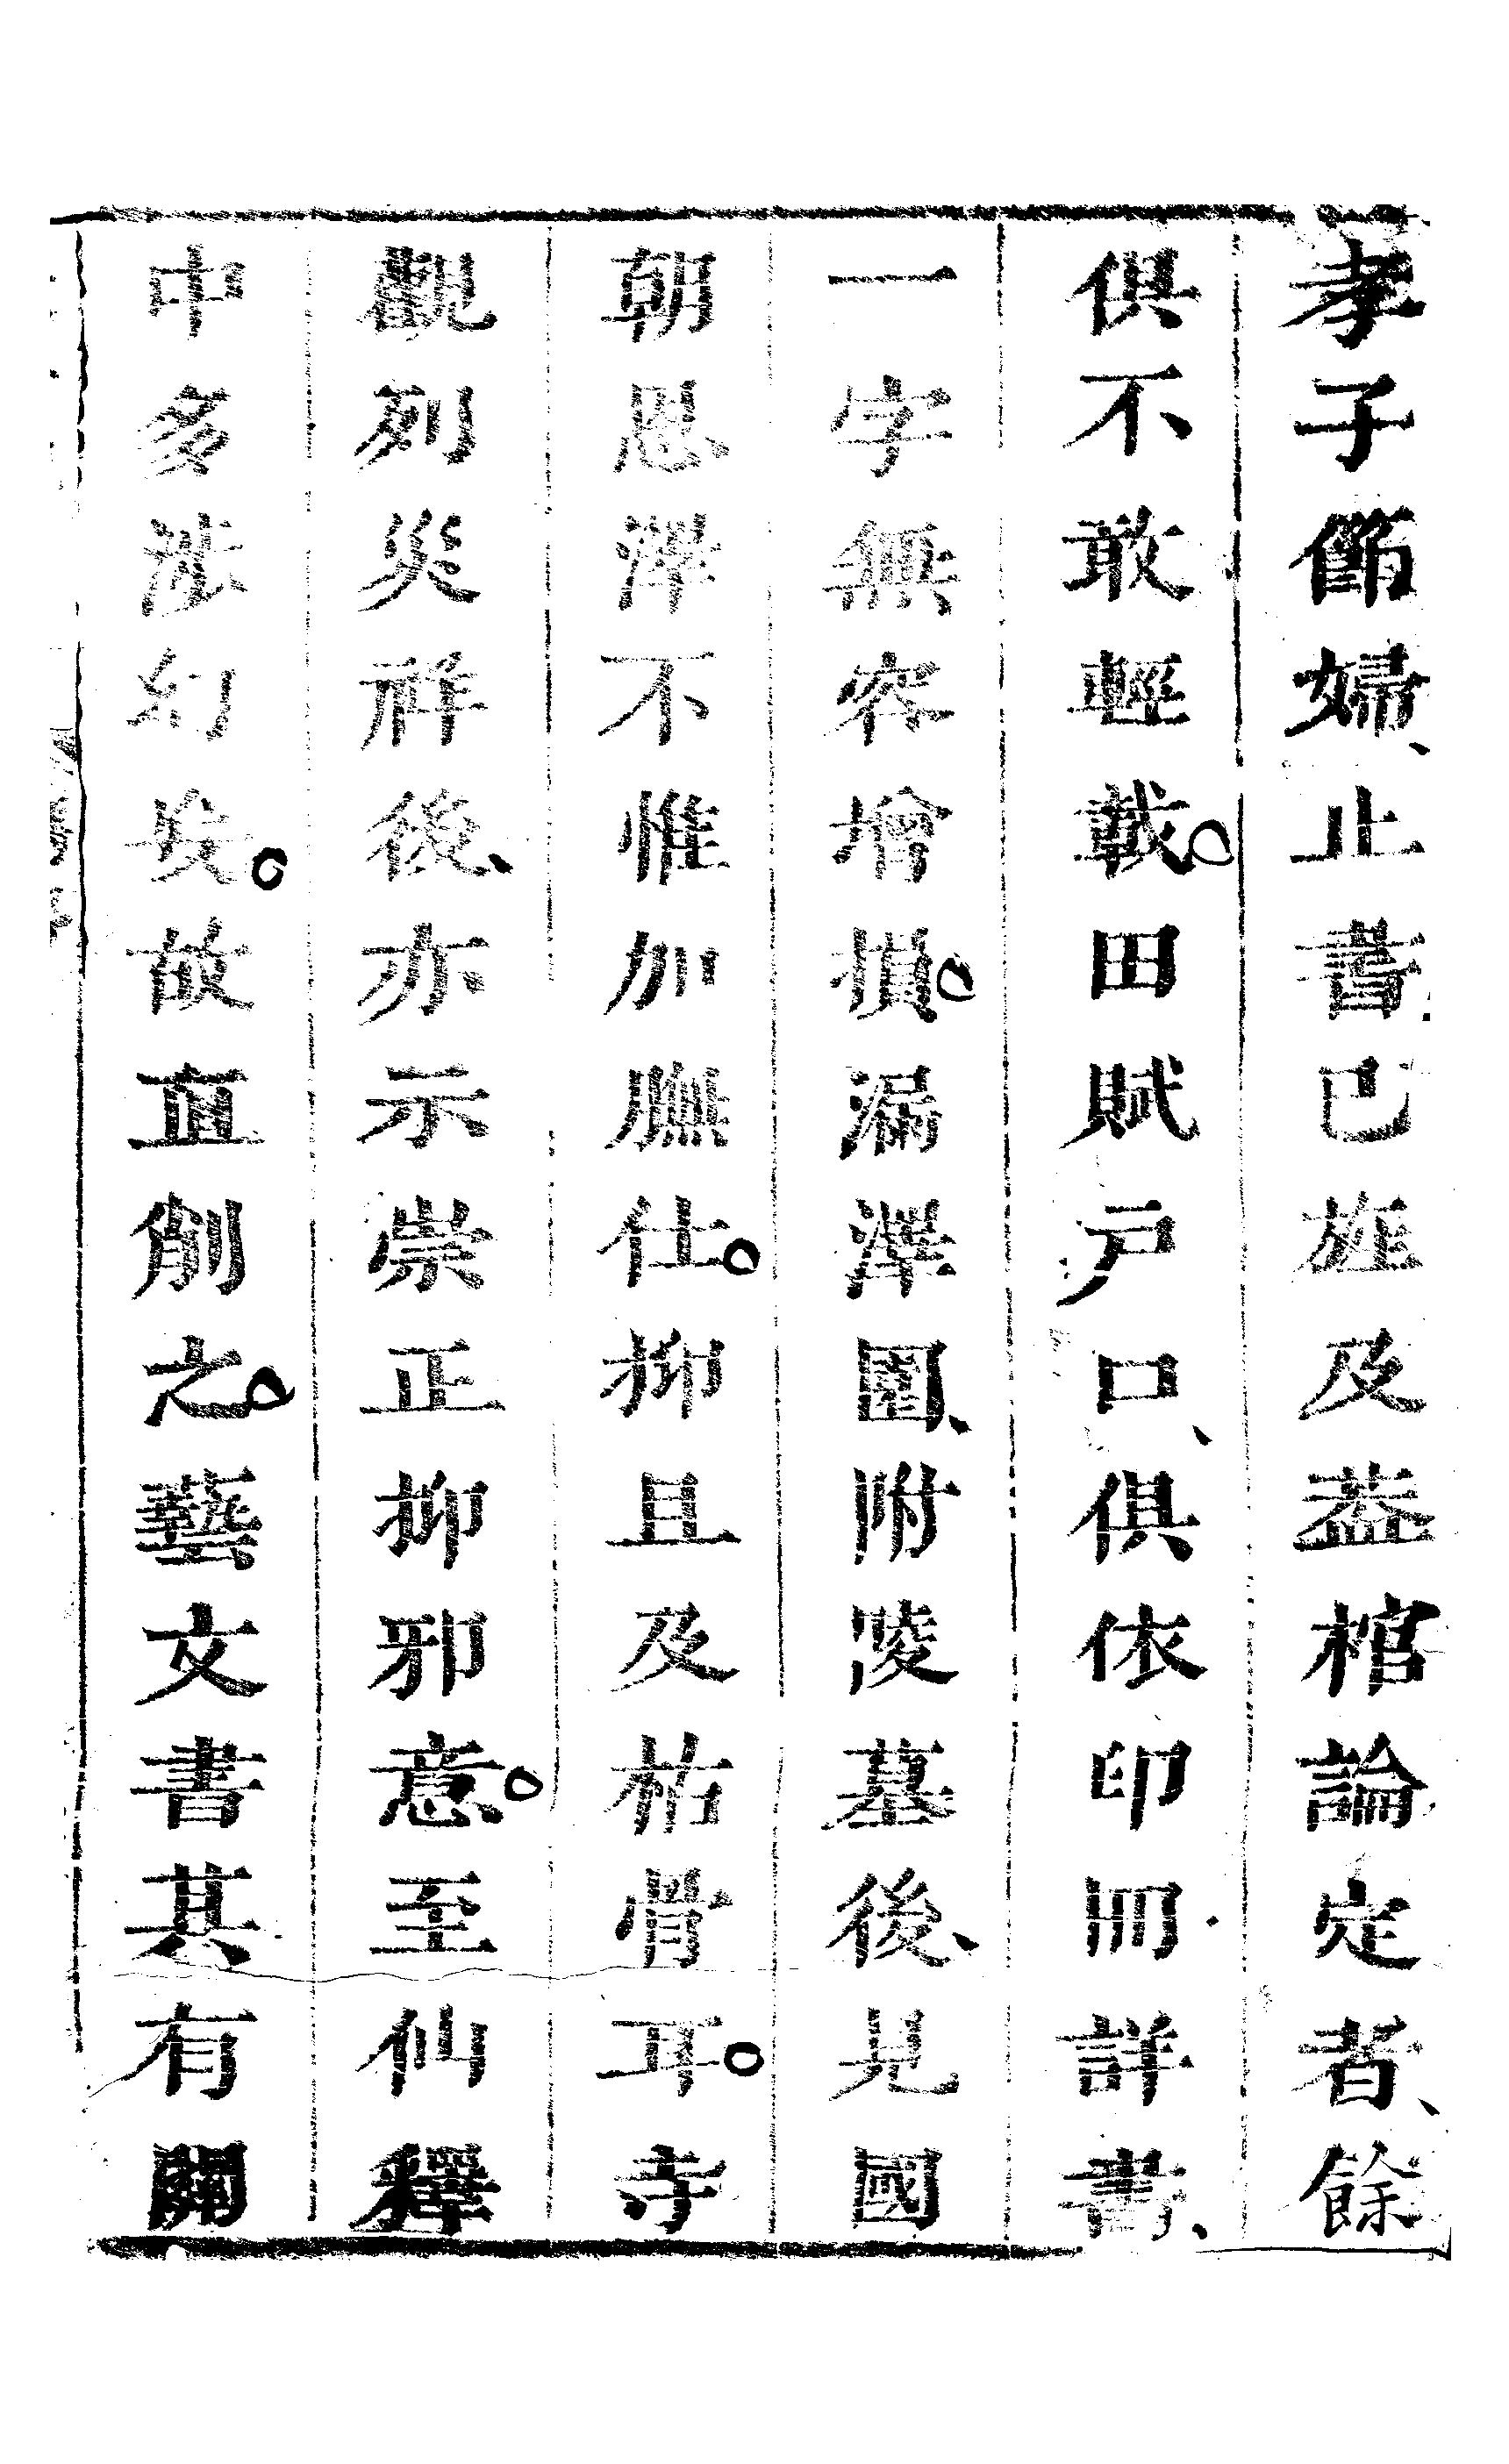 孝子節婦、止書已旌及葢棺論定者、餘
俱不敢輕載。田賦戸口、俱依印冊詳書、
一字無容增損。漏澤園、附陵墓後、見國
朝恩澤不惟加膴仕。抑且及枯骨耳。寺
觀列災祥後、亦示崇正抑邪意。至仙釋
中多滛幻妄。故直削之。藝文書其有關